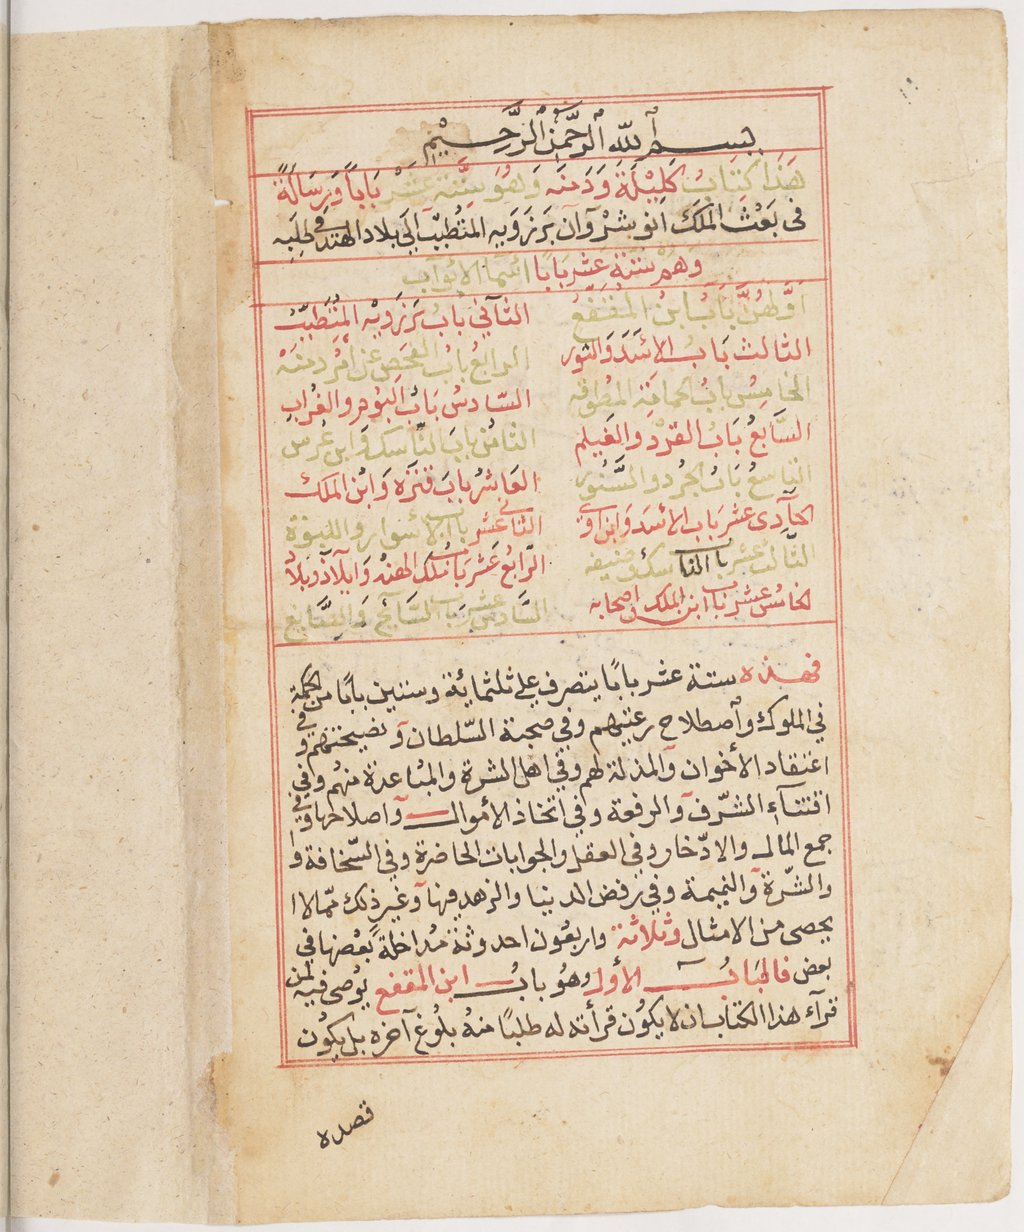 بسم الله الرحمن الرحيم
هَذَا كِتَابُ كَلِيْلَة وَدَمنَه وَهُوَ سِتَّة عَشَرْ بَاباً وَرِسَالَةً
فى بَعْث المَلَك انو شرْوَآن بَرزَوَيه المتُطبّب الَى بلاد الهند فى طلبَه
وهم ستَة عشر بَابًا اسْمَا الابْوَآب
اوَّلهنَّ بَابُ ابنُ المقفع
الثآنى بابُ بَرزَويْه المتَطَبّبْ
الثالث بَابُ الاسَدَ وَالثور
الرابعُ بابُ الفحص عَن امْر دمنَهْ
الخامسُ بابُ الحمامَة المطوقه
السّادسُ بَابُ البوُم والغرُاب
السَّابعُ بَابُ القرْد والغيلم
الثامن باب النَّاسك وَابن عرس
التاسعُ بَابُ الجُرد والسَّنوُر
العَاشرُ بابَ قنزَه وَابْن الملك
الحآدى عشر بَاب الاسَد وَابن اوى
الثانى عشَر باب الاسْوار واللبوَة
الثَّالث عشر باب الناسك وضيفه
الرَّابعُ عَشر بَاب مُلك الهند وَايلاَذ وبلاَذ
الخامسُ عشر باب ابن الملك واصحابه
السَّادسُ عشر بَاب السَّآئح وَالصَّايغ
فهذه ستة عشر بابًا يتصرف على ثلثمائة وستين بابًا من الحكمة
في الملوك وآصطلاح رعتيهم وفى صحبة السّلطان ونصيحتهم وفى
اعتقاد الأخوان والمذلة لهم وفى اهل الشرة والمبُاعدة منهم وفى
اقتنآء الشّرف والرفعة وفى اتخاذ الأموال وآصلاحها وفى
جمع المال والادّخار وفى العقل والجوابات الحاضرة وفى السّخافة وا
والشّرة والنميمة وفى رفض الدينا والزهد فيها وغير ذلك ممّا لا ا
يحصى من الامثال وثلاثة واربعُون احدوثة مُداخلة بَعْضها فى
بعض فالبَابُ الأول وهُو بابُ ابن المقفع يوُصى فيه لمن
قرآء هذا الكتاب ان لا يكوُن قرأته له طلبًا منهُ بلوُغ آخره بل يكوُن
قصده